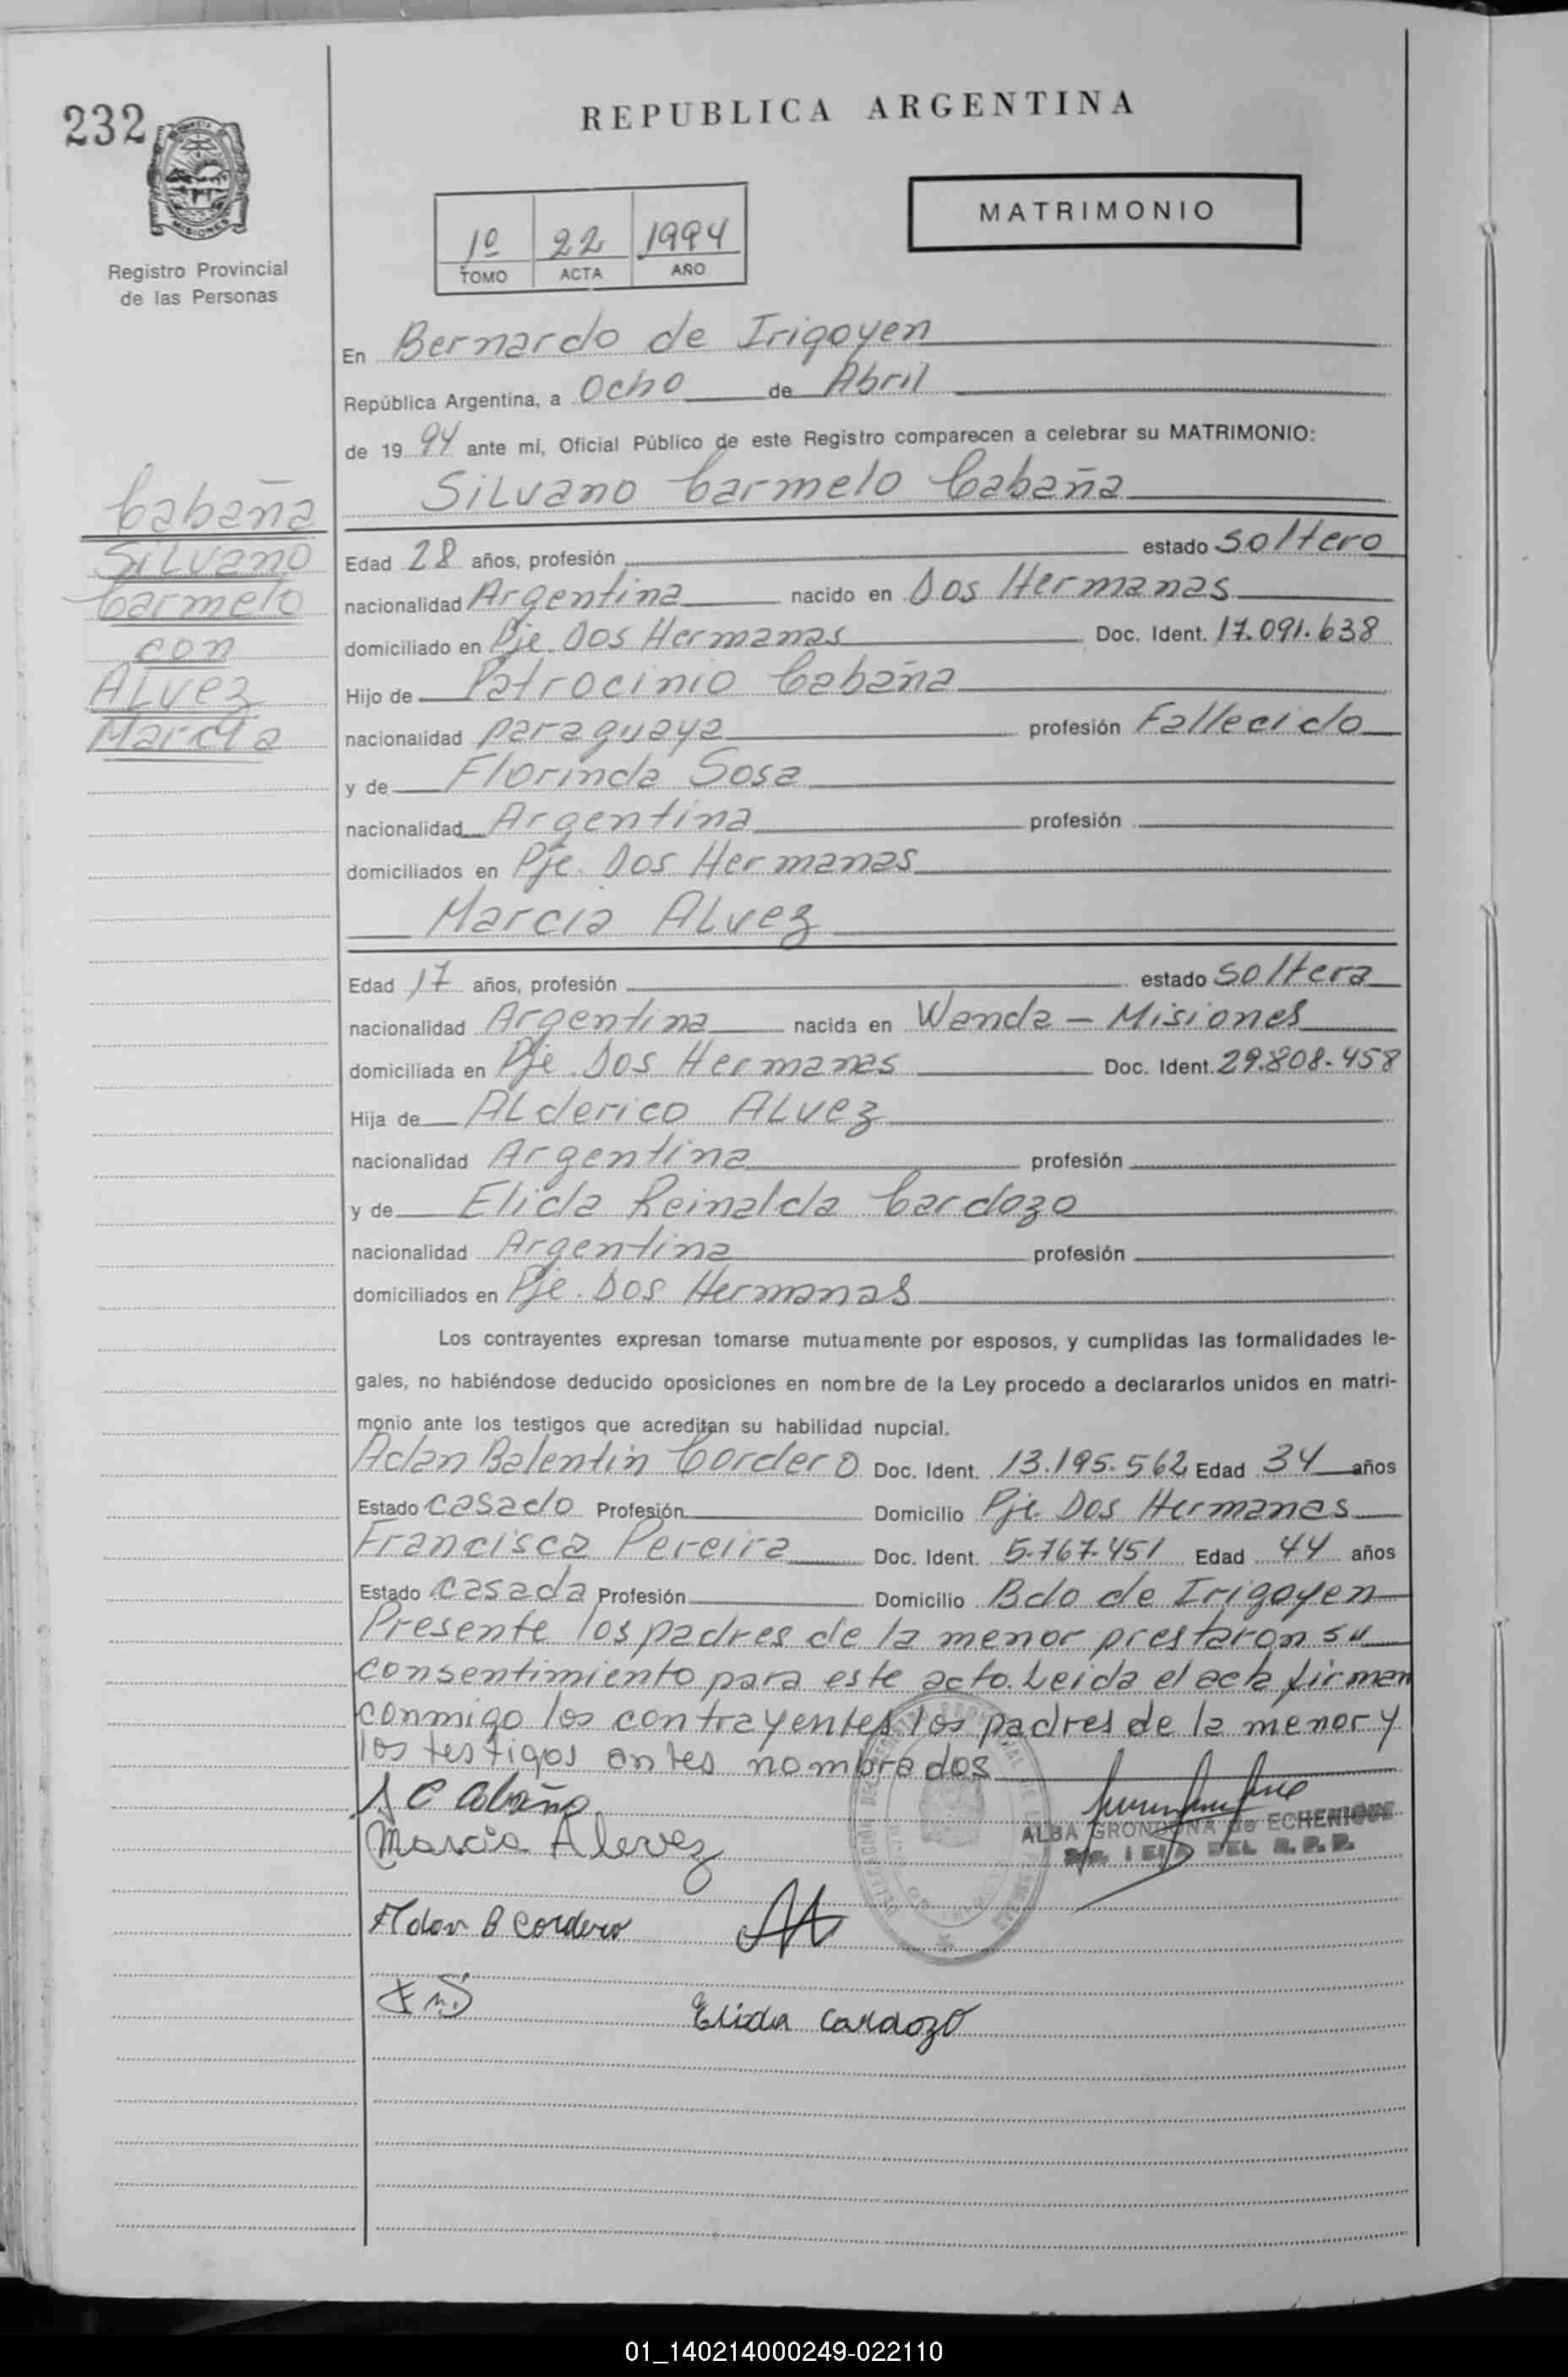 232
REPUBLICA ARGENTINA
MISIONES
Registro Provincial
de las Personas
1º 22 1994
TOMO ACTA AÑO
MATRIMONIO
Cabaña
Silvano
Carmelo
con
Alvez
Marcia
En Bernardo de Irigoyen
República Argentina, a Ocho de Abril
de 19 94 ante mí, Oficial Público de este Registro comparecen a celebrar su MATRIMONIO:
Silvano Carmelo Cabaña
Edad 28 años, profesión estado soltero
nacionalidad Argentina nacido en Dos Hermanas
domiciliado en Pje. Dos Hermanas Doc. Ident. 17.091.638
Hijo de Patrocinio Cabaña
nacionalidad paraguaya profesión Fallecido
y de Florinda Sosa
nacionalidad Argentina profesión
domiciliados en Pje. Dos Hermanas
Marcia Alvez
Edad 17 años, profesión estado soltera
nacionalidad Argentina nacida en Wanda - Misiones
domiciliada en Pje. Dos Hermanas Doc. Ident. 29.808.458
Hija de Alderico Alvez
nacionalidad Argentina profesión
y de Elida Reinalda Cardozo
nacionalidad Argentina profesión
domiciliados en Pje. Dos Hermanas
Los contrayentes expresan tomarse mutuamente por esposos, y cumplidas las formalidades le-
gales, no habiéndose deducido oposiciones en nombre de la Ley procedo a declararlos unidos en matri-
monio ante los testigos que acreditan su habilidad nupcial.
Adan Balentin Cordero Doc. Ident. 13.195.562 Edad 34 años
Estado casado Profesión Domicilio Pje Dos Hermanas
Francisca Pereira Doc. Ident. 5.767.451 Edad 44 años
Estado casada Profesión Domicilio Bdo de Irigoyen
Presente los padres de la menor prestaron su
consentimiento para este acto. Leida el acta firman
conmigo los contrayentes los padres de la menor y
los testigos antes nombrados
S C Cabaña
ALBA GRONDONA de ECHENIQUE
Marcia Alevez
DEL R. P. P.
Adan B Cordero
Elida Cardozo
01_140214000249-022110